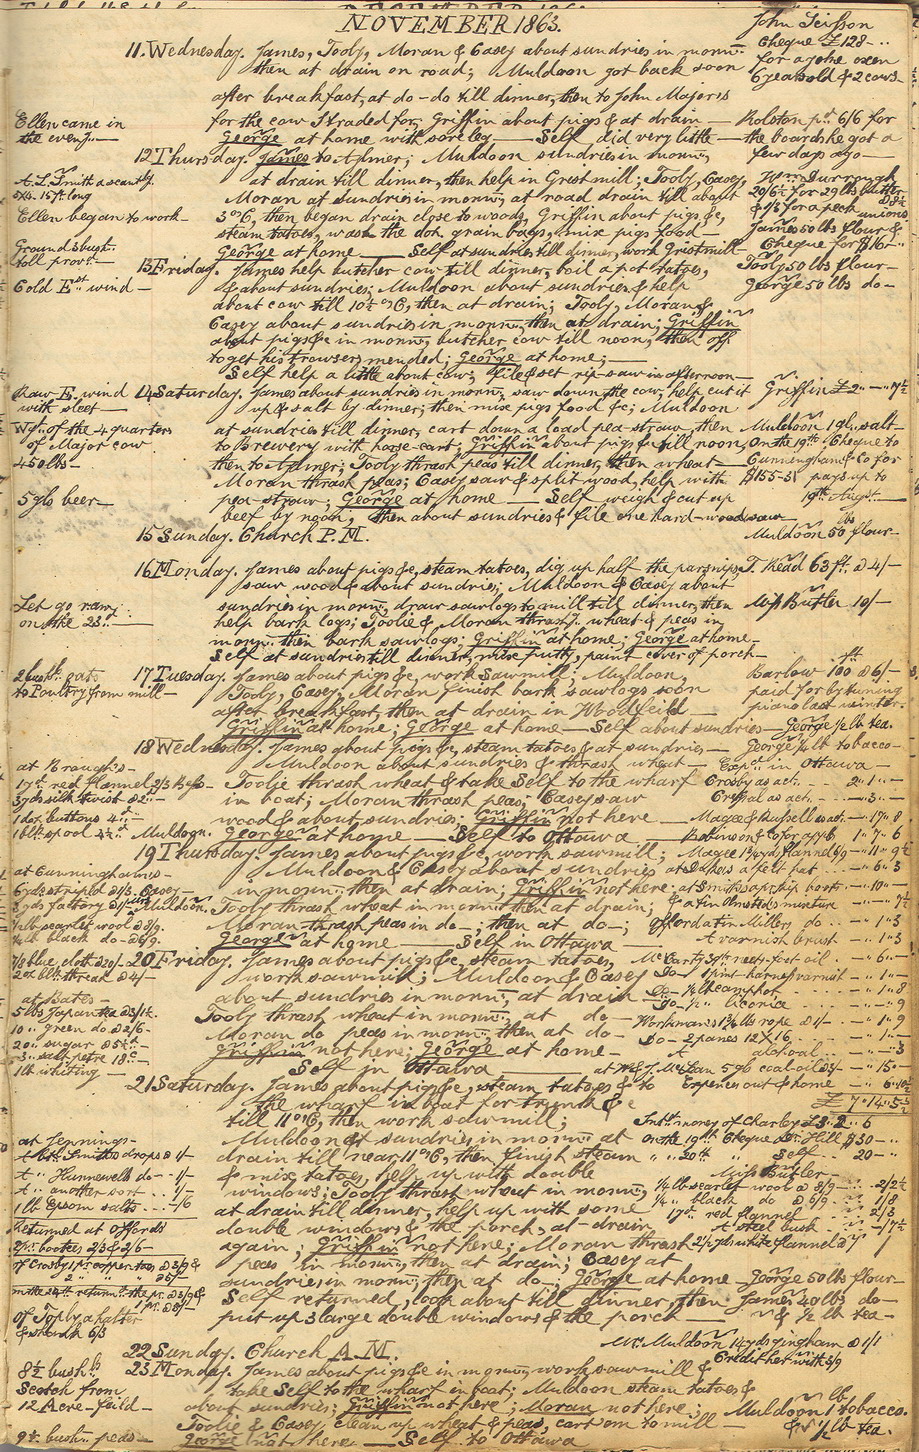 NOVEMBER 1863.
John Scisson
Cheque £128-..
for a yoke oxen
6 years old & 2 cows-
11. Wednesday. James, Tooly, Moran & Casey about sundries in mornng
then at drain on road; Muldoon got back soon
after breakfast, at do-do till dinner, then to John Major's
for the cow I traded for, Griffin about pigs & at drain —
George at home with sore leg — Self did very little —
Ellen came in
the eveng. —
Rolston pd. 6/6 for
the boards he got a
few days ago —
12 Thursday. James to Aylmer; Muldoon sundries in mornng,
at drain till dinner, then help in Grest mill; Tooly, Casey,
Moran at sundries in mornng, at road drain till about
3 o'C, then began drain close to woods, Griffin about pigs &c,
steam tatoes, wash the dob. grain bags, mix pigs food —
George at home — Self at sundries till dinner, work Gristmill
A. L. Smith a scantlg.
5x6. 15 ft. long
Ellen began to work-
Ground 3 bush.
toll provr. —
Wm. Durrough
20/6½ for 29 lbs butter
& 1/3 for a peck unions
James 50 lbs flour &
Cheque for $16 —
Tooly 50 lbs flour-
George 50 lbs do-
13 Friday. James help butcher cow till dinner, boil a pot tatoes,
& about sundries; Muldoon about sundries & help
about cow till 10½ o'C, then at drain; Tooly, Moran &
Casey about sundries in mornng, then at drain; Griffin
about pigs &c in mornng, butcher cow till noon, then off
to get his trowsers mended; George at home; —
Self help a little about cow; file & set rip-saw in afternoon —
Cold Est. wind —
14 Saturday. James about sundries in mornng, saw down the cow, help cut it
up & salt by dinner; then mix pigs food &c; Muldoon
at sundries till dinner, cart down a load pea-straw, then
to Brewery with horse-cart; Griffin about pigs &c till noon,
then to Aylmer; Tooly thrash peas till dinner, then wheat —
Moran thrash peas; Casey saw & split wood, help with
pea-straw; George at home — Self weigh & cut up
beef by noon, then about sundries & file one hard-wood saw
Raw E. wind
with sleet —
Wgt. of the 4 quarters
of Major cow
450 lbs-
5 gls beer-
Griffin £2" — "7½
Muldoon 19 lbs salt-
On the 19th. Cheque to
Cunningham & Co for
$155-51 pays up to
19th Augst. —
Muldoon 50 lbs flour-
15 Sunday. Church P.M.
16 Monday. James about pigs &c, steam tatoes, dig up half the parsnips,
saw wood & about sundries; Muldoon & Casey about
sundries in mornng, draw sawlogs to mill till dinner, then
help bark logs; Toolie & Moran thrashg. wheat & peas in
mornng. then bark sawlogs; Griffin at home; George at home-
Self at sundries till dinner, mix putty, paint cover of porch-
on the 23d. —
T. Read 63 ft. @ 4/-
Mrs Butler 10/-
17 Tuesday. James about pigs &c, work sawmill; Muldoon,
Tooly, Casey, Moran finist bark sawlogs soon
after breakfast, then at drain in Woodfeild —
Griffin at home; George at home — Self about sundries —
2 bushls. oats
to Poultry from mill-
Barlow 100 ft @ 6/-
paid for by tuning
piano last winter.
George ½ lb tea.
18 Wednesday. James about pigs &c, steam tatoes & at sundries —
Muldoon about sundries & thrash wheat —
Toolie thrash wheat & take Self to the wharf
in boat; Moran thrash peas; Casey saw
wood & about sundries; Griffin not here
George at home — Self to Ottawa —
at Brough's-
3 yds silk twist @ 2"-
1 doz. buttons 4"-
George ½ lb tobacco-
Expn. in Ottawa —
Crosby as act. - 2"1"-
- "3"-
Magee & Russell as act. - "17"8
Robinson & Co for ap - 1"7"6
19 Thursday. James about pigs &c, work sawmill;
Muldoon & Casey about sundries
in mornng. then at drain; Griffin not here;
Tooly thrash wheat in mornng then at drain;
Moran thrash peas in do-; then at do-;
George at home — Self in Ottawa —
at Cunningham's-
½ lb scarlet wool @ 8/9.
¼ lb black do- @ 6/9.
a felt hat - "6"3
- "10"-
- "7½
Millers do- - 1"3
A varnish brush - 1"3
20 Friday. James about pigs &c, steam tatoes,
work sawmill; Muldoon & Casey
about sundries in mornng, at drain —
Tooly thrash wheat in mornng, at do-
Moran do peas in mornng, then at do-
Griffin not here; George at home —
Self in Ottawa —
2 oz lb. threak @ 4/-
at Bates-
5 lbs Japan tea @ 3/1½.
10" green do @ 2/6-
20" sugar
3" salt petre
1 lb whiting —
McCarty 3 pts neets-foot oil - "6"-
Do- 1 pint harness varnish - "1"-
Do- ½ lb camphor - "1"8
Do ½" licorice - "9
Workman's 1¾ lbs rope @ 1/- - "1"9
Do- 2 panes 12X16
- "3
at W & J. McLean 5 gls coal-oil @ 3/ - "15"-
Expences out & home - "6"10½
£7"14"5½
21 Saturday. James about pigs &c, steam tatoes & to
the wharf in boat for trunk &c
till 11 o'C, then work sawmill;
Muldoon at sundries in mornng. at
drain till near 11 o'C, then finish steam
& mix tatoes, help up with double
windows; Tooly thrash wheat in mornng,
at drain till dinner, help up with some
double windows & the porch, at drain
again; Griffin not here; Moran thrash
peas in mornng, then at drain; Casey at
sundries in mornng, then at do-; George at home-
Self returned, look about till dinner, then
put up 3 large double windows & the porch —
at Jennings-
A btl. Smiths drops @ 1/-
A" Hunnewells do- -1/-
A" another sort - -1/-
1 lb Epsom salts - -/6
Returned at Offords
2 prs. bootees 2/3 & 2/6-
Of Tooly a halter
Intst. money of Charley £3"2"6
On the 19th Cheque Dr. Hill $30-
" " 20th " Self - 20-
Miss Butler-
¼ lb scarlet wool @ 8/9 - 2/2½
¼" black do @ 6/9 1/8
17d. red flannel 2/3
A steel busk -/7½
2½ yds white flannel
George 50 lbs flour-
James 40 lbs do-
" & ½ lb tea-
22 Sunday. Church A.M.
Mr. Muldoon 14 yds gingham @ 1/1
Credit her with 3/9
23 Monday. James about pigs &c in mornng, work sawmill &
take Self to the wharf in boat; Muldoon steam tatoes &
about sundries; Griffin not here; Moran not here;
Toolie & Casey clean up wheat & peas, cart som to mill
George not here — Self to Ottawa
8½ bushls.
Scotch from
12 Acre-feild-
9½ bushls peas-
Muldoon 1 lb tobacco.
& ½ lb tea.